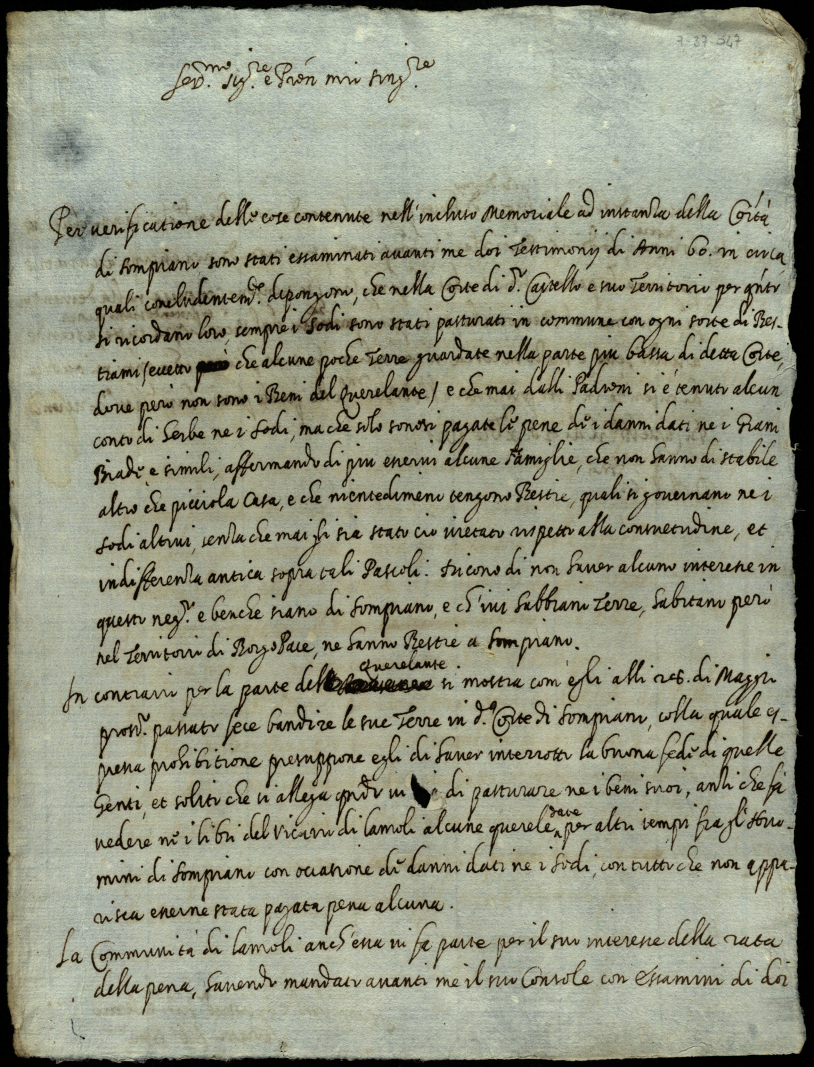 7-37 547
Ser.mo Sig.re e Pron mio sing.re
Per verificatione delle cose contenute nell'incluso Memoriale ad instanza della Co'ità
di Sompiano sono stati essaminati avanti me doi Testimonij di Anni 60. in circa,
quali concludentem.te depongono, che nella Corte di d.o Castello e suo Territorio per q'nto
si ricordano loro, sempre i Sodi sono stati pasturati in commune con ogni sorte di Bes-
tiami (eccetto che alcune poche Terre guardate nella parte piu bassa di detta Corte,
dove però non sono i Beni del Querelante) e che mai dalli Padroni si è tenuto alcun
conto di herbe ne i Sodi, ma che solo sonosi pagate le pene de i danni dati ne i Grani
Biade, e simili, affermando di piu esservi alcune Famiglie, che non hanno di stabile
altro che picciola Casa, e che nientedimeno tengono Bestie, quali si governano ne i
Sodi altrui, senza che mai gli sia stato ciò vietato rispetto alla consuetudine, et
indifferenza antica sopra tali Pascoli. Dicono di non haver alcuno interesse in
questo neg.o e benche siano di Sompiano, e ch'ivi habbiano Terre, habitano però
nel Territorio di Borgo Pace, ne hanno Bestie a Sompiano.
In contrario per la parte del Querelante si mostra com'egli alli 28. di Maggio
pross.o passato fece bandire le sue Terre in d.a Corte di Sompiano, colla quale es-
pressa prohibitione presuppone egli di haver interrotto la buona fede di quelle
Genti, et solito che si allega di pasturare ne i beni suoi, anzi che fà
vedere ne i libri del Vicario di Lamoli alcune querele date per altri tempi fra gl'Huo-
mini di Sompiano con occasione de danni dati ne i Sodi, con tutto che non appa-
risca esserne stata pagata pena alcuna.
La Communità di Lamoli anch'essa vi fa parte per il suo interesse della rata
della pena, havendo mandato avanti me il suo Console con essamini di doi